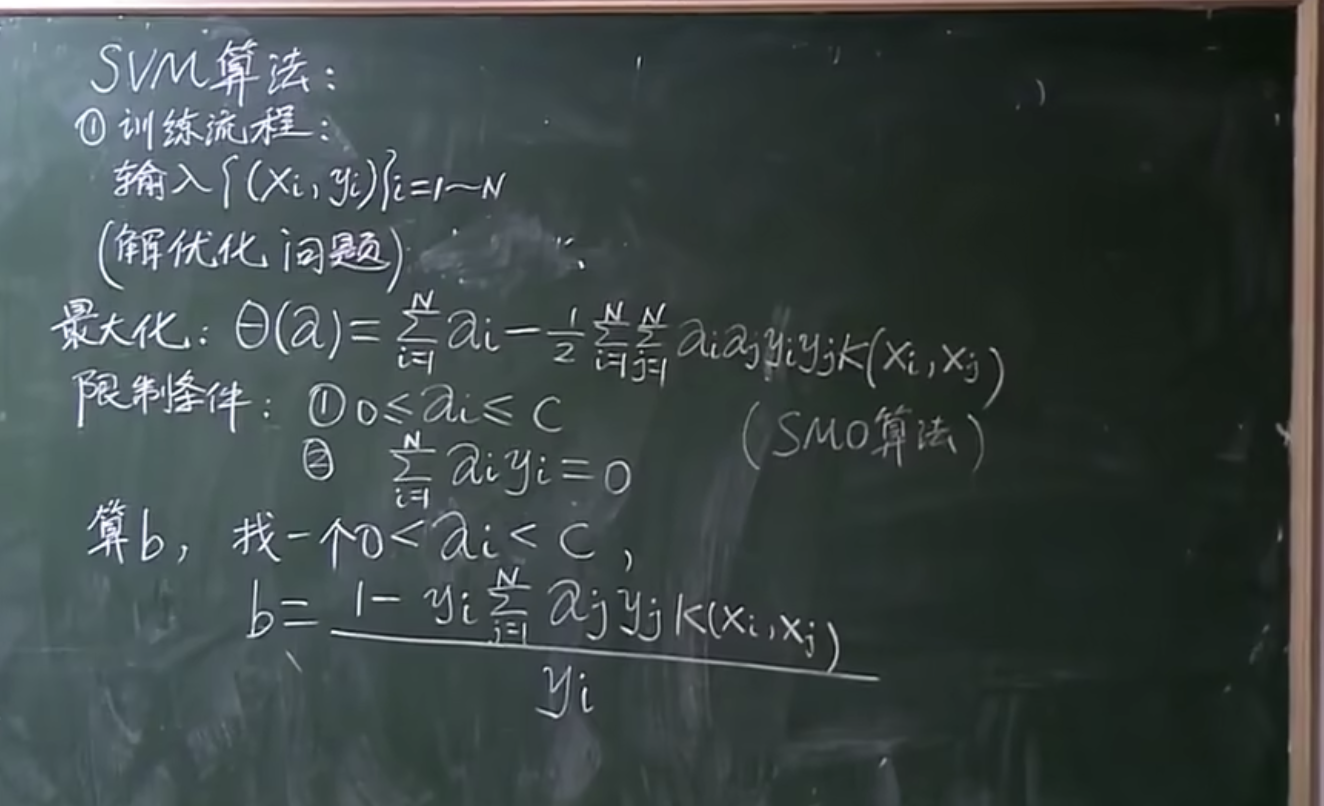 SVM算法：
①训练流程：
输入{(xi, yi)}i=1~N
(解优化问题)
最大化：θ(a)=∑_{i=1}^{N} ai - 1/2 ∑_{i=1}^{N} ∑_{j=1}^{N} ai aj yi yj K(xi, xj)
限制条件：①0≤ai≤C (SMO算法)
② ∑_{i=1}^{N} ai yi=0
算b，找一个0<ai<C，
b= (1- yi ∑_{j=1}^{N} aj yj K(xi, xj)) / yi